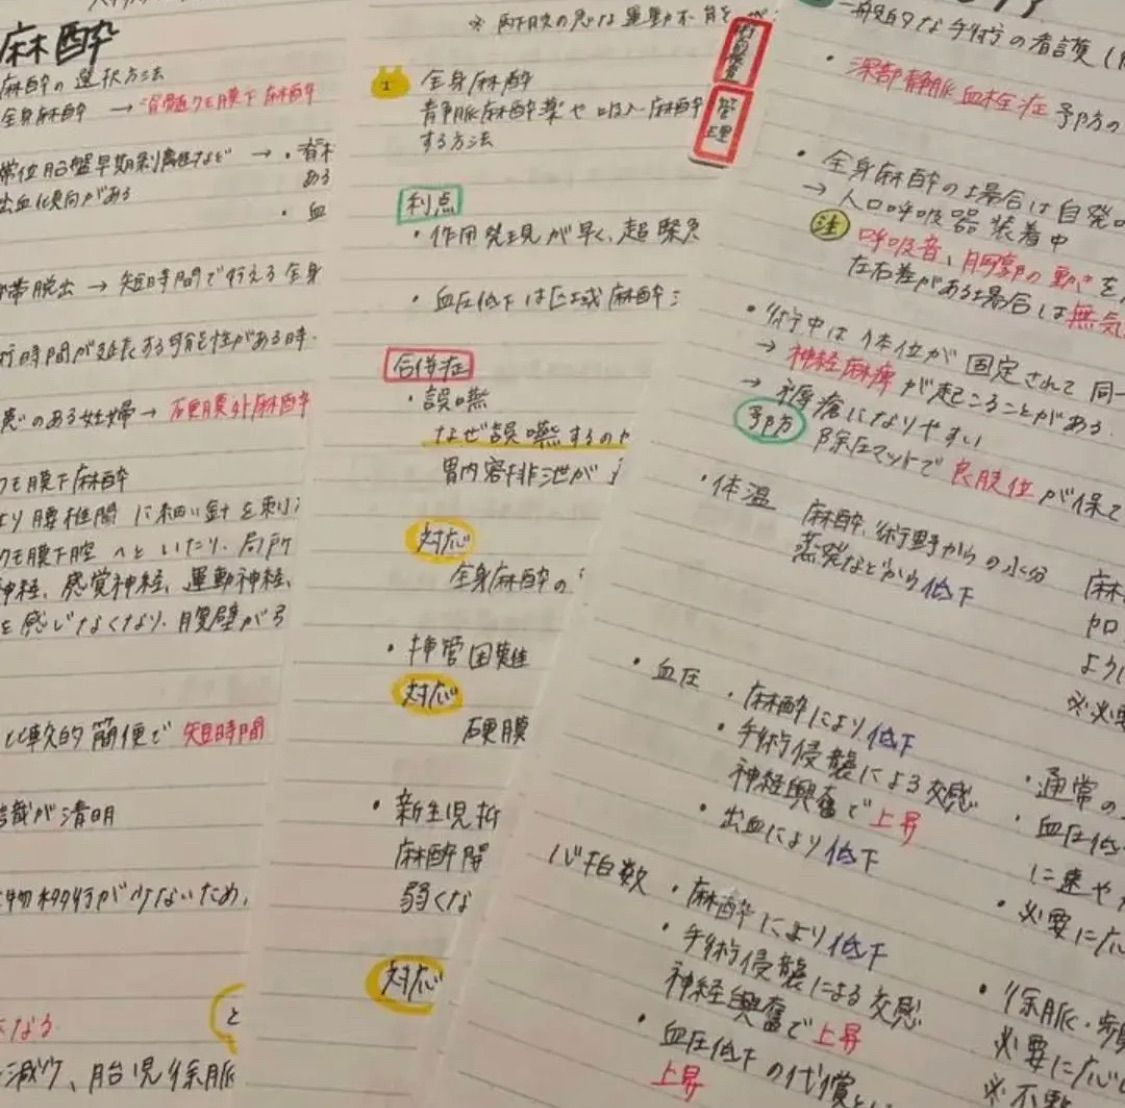 麻酔
麻酔の選択方法
全身麻酔 → 脊髄クモ膜下麻酔
常位胎盤早期剥離など → ・脊
ある
出血傾向がある
・血
帯脱出 → 短時間で行える全身
術時間が延長する可能性がある時
患いのある妊婦 → 硬膜外麻酔
クモ膜下麻酔
より腰椎間に細い針を刺
クモ膜下腔へといたり、局所
神経、感覚神経、運動神経、
を感じなくなり、腹壁が弓
比較的簡便で短時間
識が清明
物移行が少ないため、
と
なる
減少、胎児徐脈
1 全身麻酔
静脈麻酔薬や吸入麻酔
する方法
利点
・作用発現が早く、超緊急
・血圧低下は区域麻酔
合併症
・誤嚥
なぜ誤嚥するのか
胃内容排泄が
対応
全身麻酔の
・挿管困難
対応
硬膜
・新生児抑
麻酔開
弱くな
対応
管理
一般的な手術の看護
・深部静脈血栓症予防の
・全身麻酔の場合は自発
→ 人口呼吸器装着中
注 呼吸音、胸郭の動きを
左右差がある場合は無気
・術中は体位が固定されて同一
→ 神経麻痺が起こることがある。
→ 褥瘡になりやすい
予防 除圧マットで良肢位が保て
・体温 麻酔、術野からの水分
蒸発などから低下
麻
加
よう
※必要
・血圧 ・麻酔により低下
・手術侵襲による交感
神経興奮で上昇
・出血により低下
・通常の
・血圧低
に速や
・必要に応
心拍数 ・麻酔により低下
・手術侵襲による交感
神経興奮で上昇
・血圧低下の代償
上昇
・徐脈・頻
必要に応
※不整